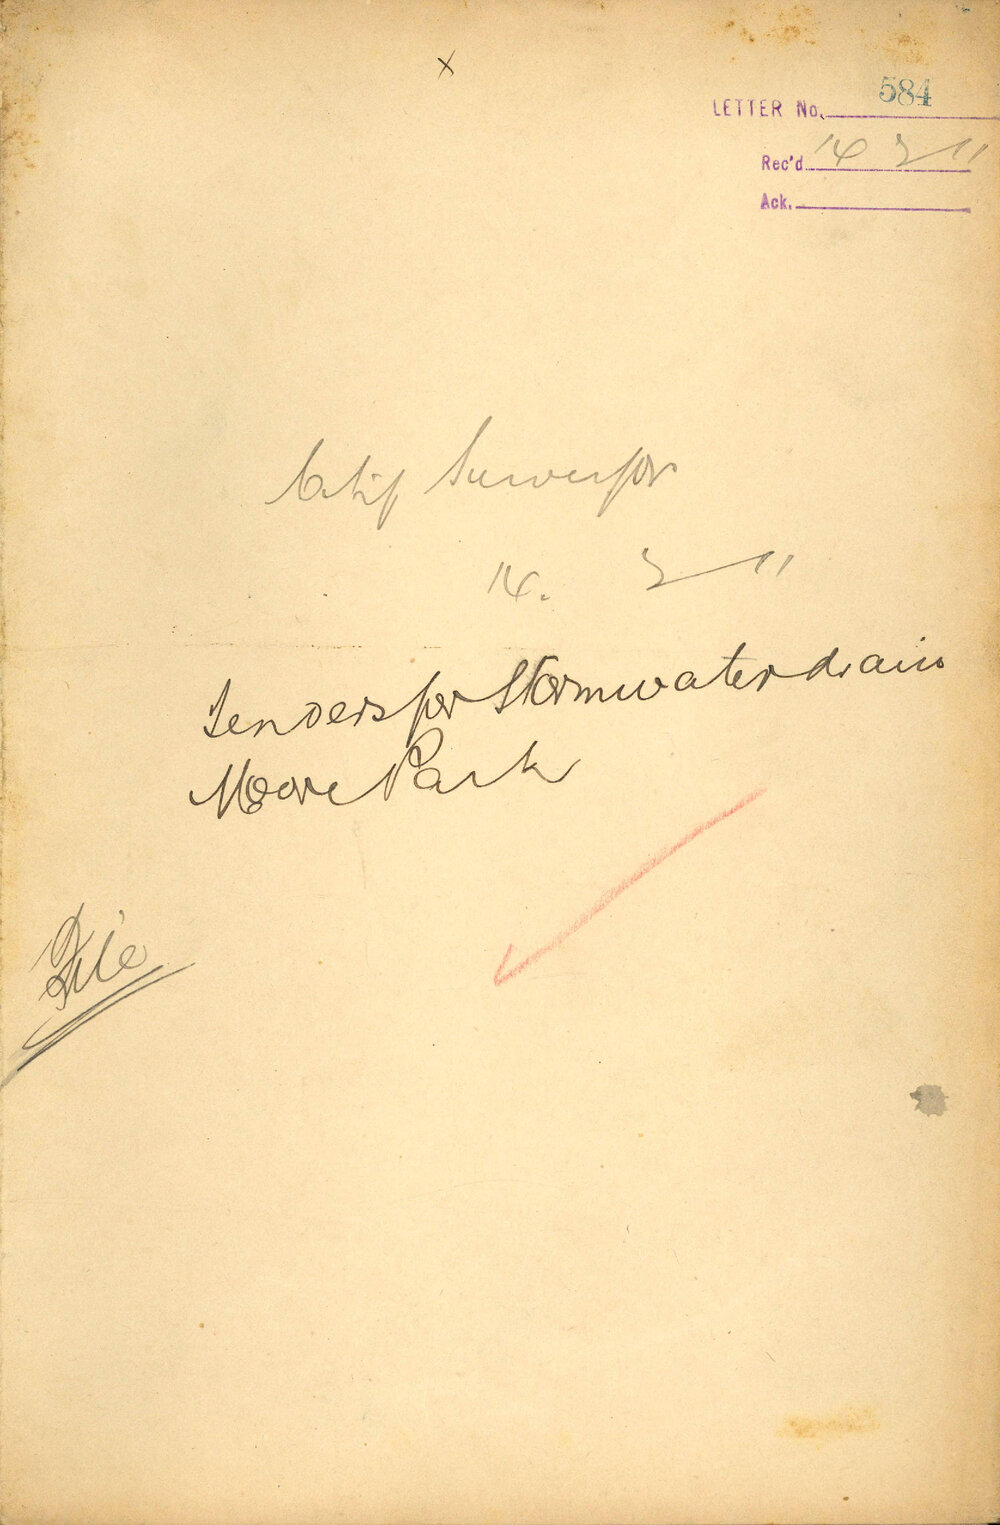 x
LETTER No. 584
Rec'd 14 3 11
Ack.
City Surveyor
14. 3 11
Tenders for Stormwater drain
Moore Park
File